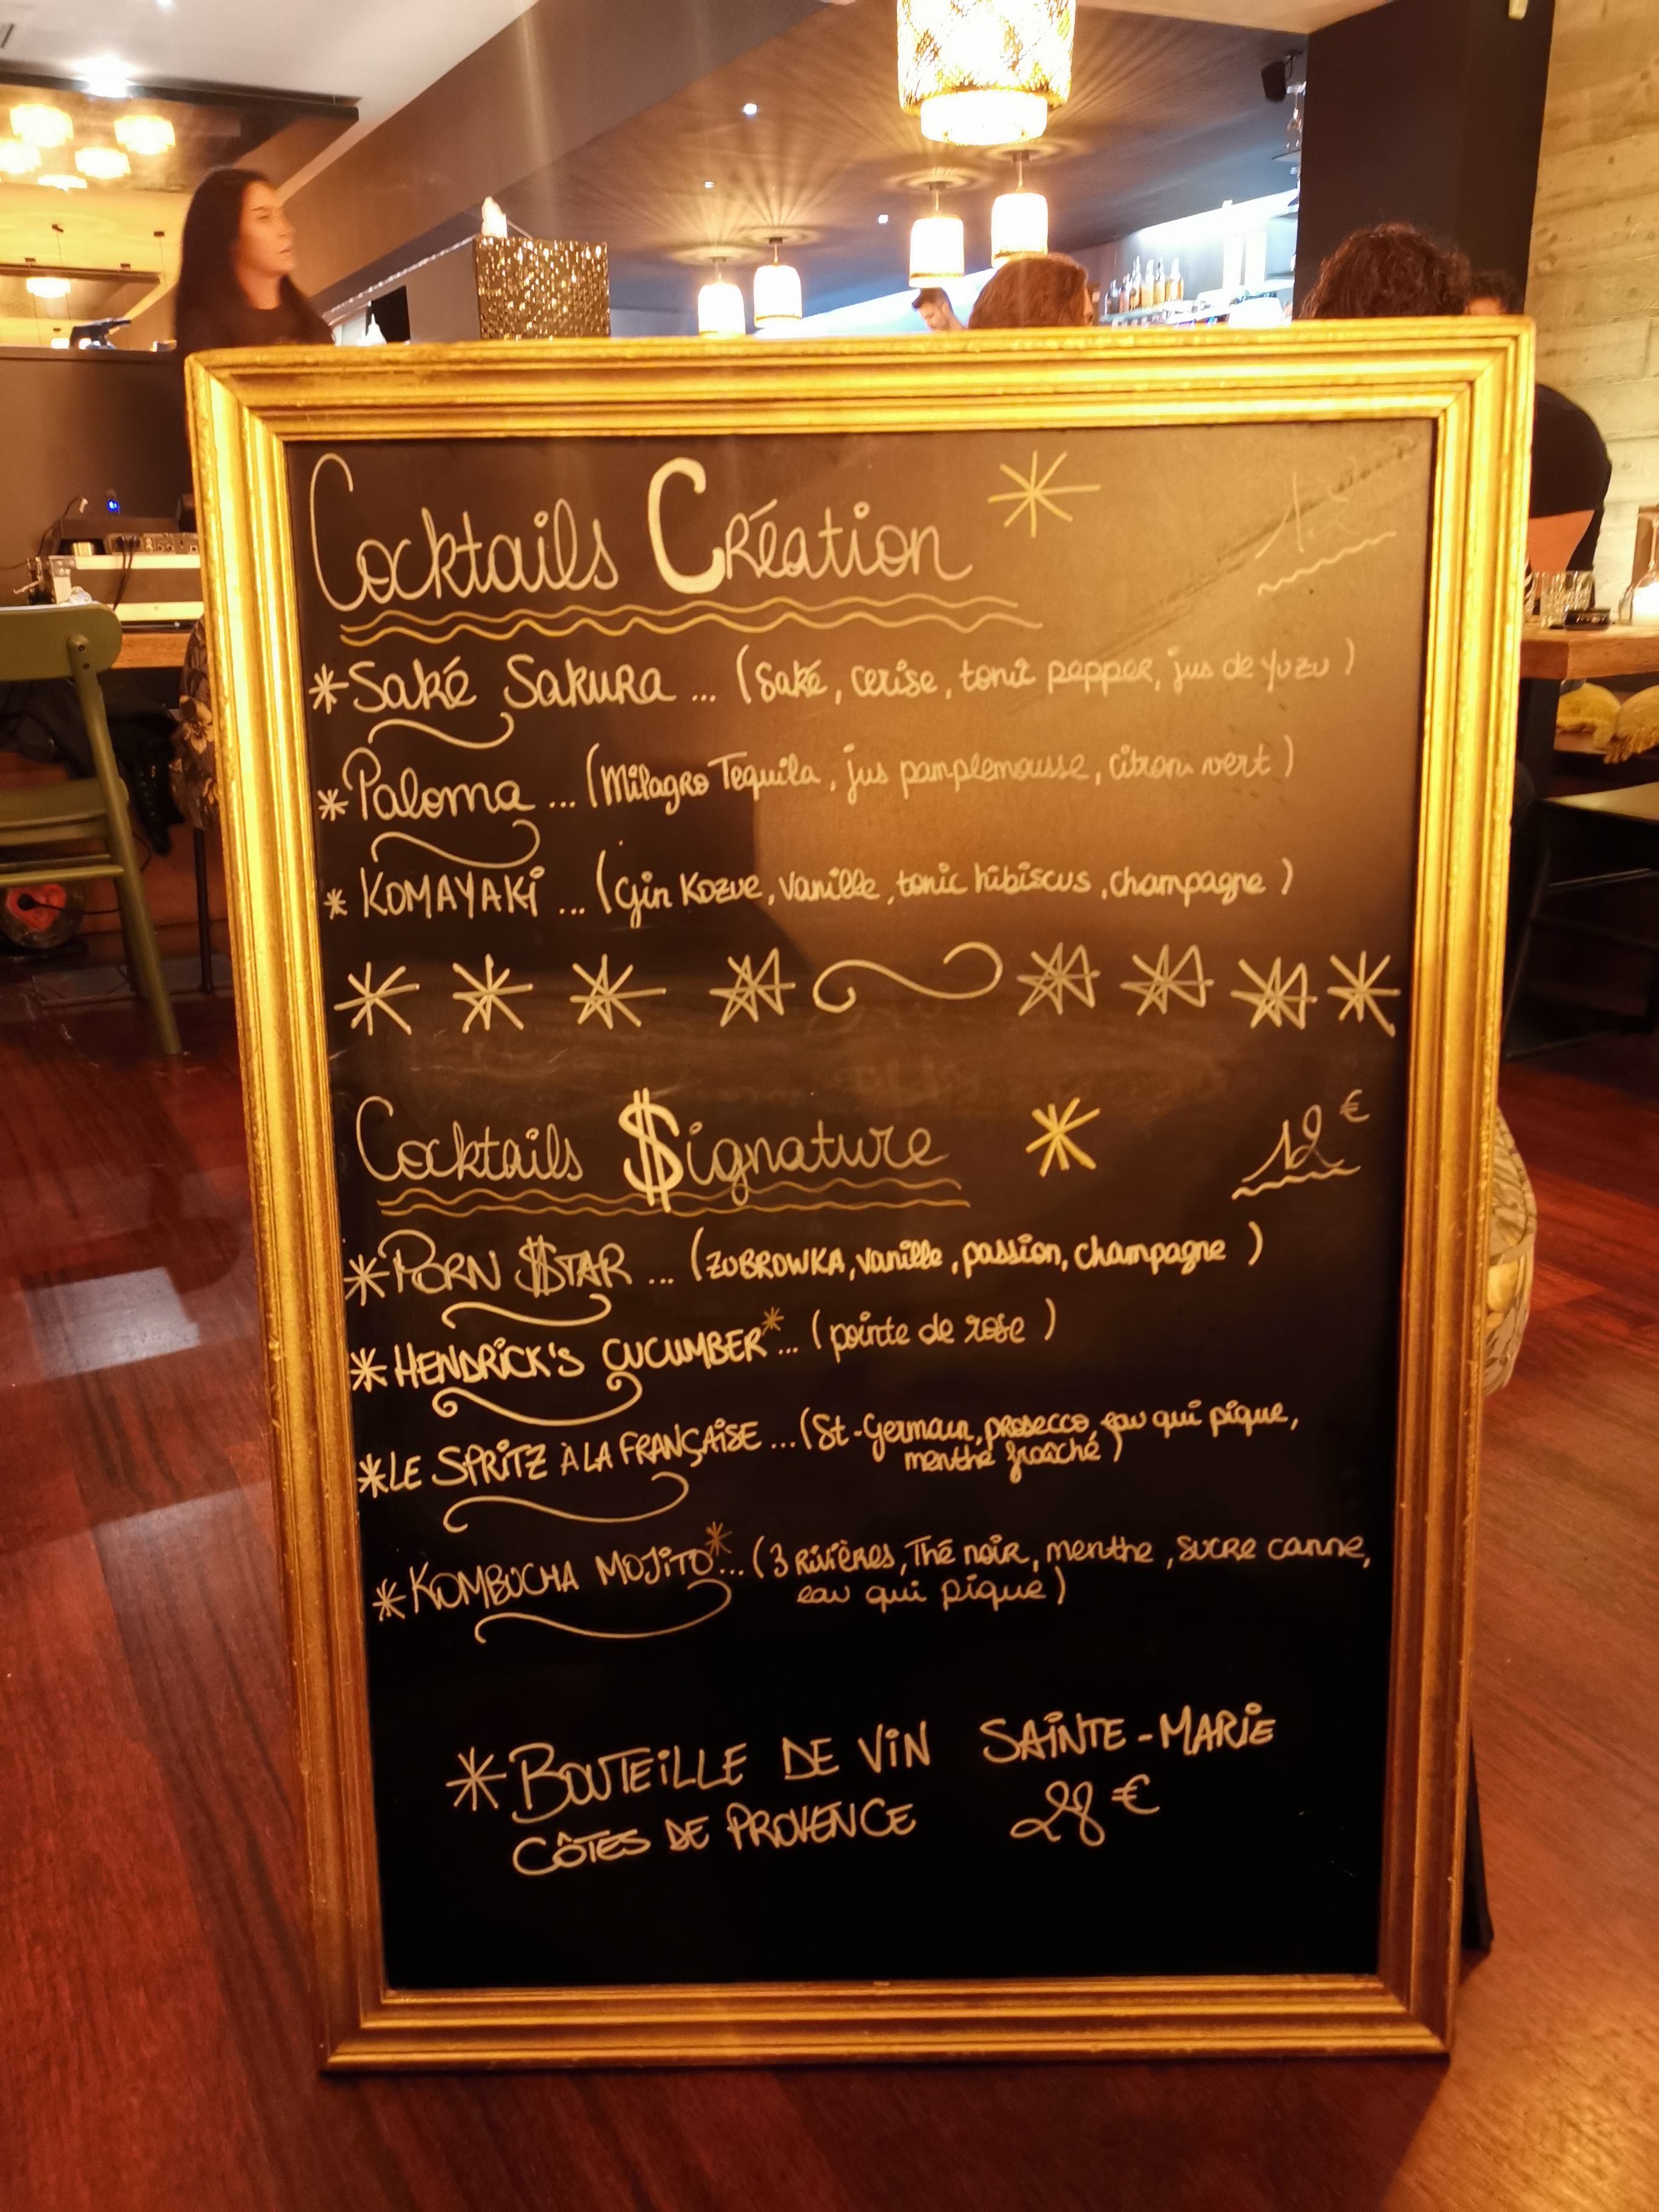 Cocktails Création
* Saké Sakura ... (Saké, cerise, tonic pepper, jus de yuzu)
* Paloma ... (Milagro Tequila, jus pamplemousse, citron vert)
* KOMAYAKI ... (Gin Kozue, vanille, tonic hibiscus, champagne)
Cocktails $ignature * 12€
* PORN $TAR ... (ZUBROWKA, vanille, passion, champagne)
* HENDRICK'S CUCUMBER* ... (pointe de rose)
* LE SPRITZ À LA FRANÇAISE ... (St-Germain, prosecco, eau qui pique,
menthe fraîche)
* KOMBUCHA MOJITO* ... (3 RIVIÈRES, Thé noir, menthe, sucre canne,
eau qui pique)
* BOUTEILLE DE VIN SAINTE-MARIE
CÔTES DE PROVENCE 28€